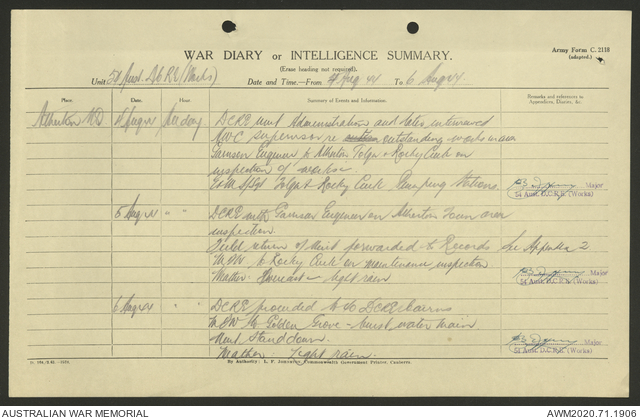 Army Form C. 2118
(adapted.)
WAR DIARY or INTELLIGENCE SUMMARY.
(Erase heading not required).
Unit 54 Aust. D.C.R.E. (Works) Date and Time—From 4 Aug 44 To 6 Aug 44.
Place. Date. Hour. Summary of Events and Information. Remarks and references to Appendices, Diaries, &c.
Atherton 4 Aug 44 All day DCRE Unit Administration and later interviewed
AWC supervisor re outstanding works in area
Garrison Engineer to Atherton Tolga & Rocky Creek on
inspection of works
Tolga & Rocky Creek Pumping Stations. Major
54 Aust. D.C.R.E. (Works)
5 Aug 44 " " DCRE with Garrison Engineer on Atherton Town area
inspection
Field return of Unit forwarded to Records See Appendix 2
to Rocky Creek on maintenance inspection
Weather Overcast - light rain Major
54 Aust. D.C.R.E. (Works)
6 Aug 44 " " DCRE proceeded to DCRE Cairns
to Golden Grove - burst water main
Unit Stand down. Major
Weather Light rain. 54 Aust. D.C.R.E. (Works)
By Authority: L. F. Johnston, Commonwealth Government Printer, Canberra.
AUSTRALIAN WAR MEMORIAL AWM2020.71.1906